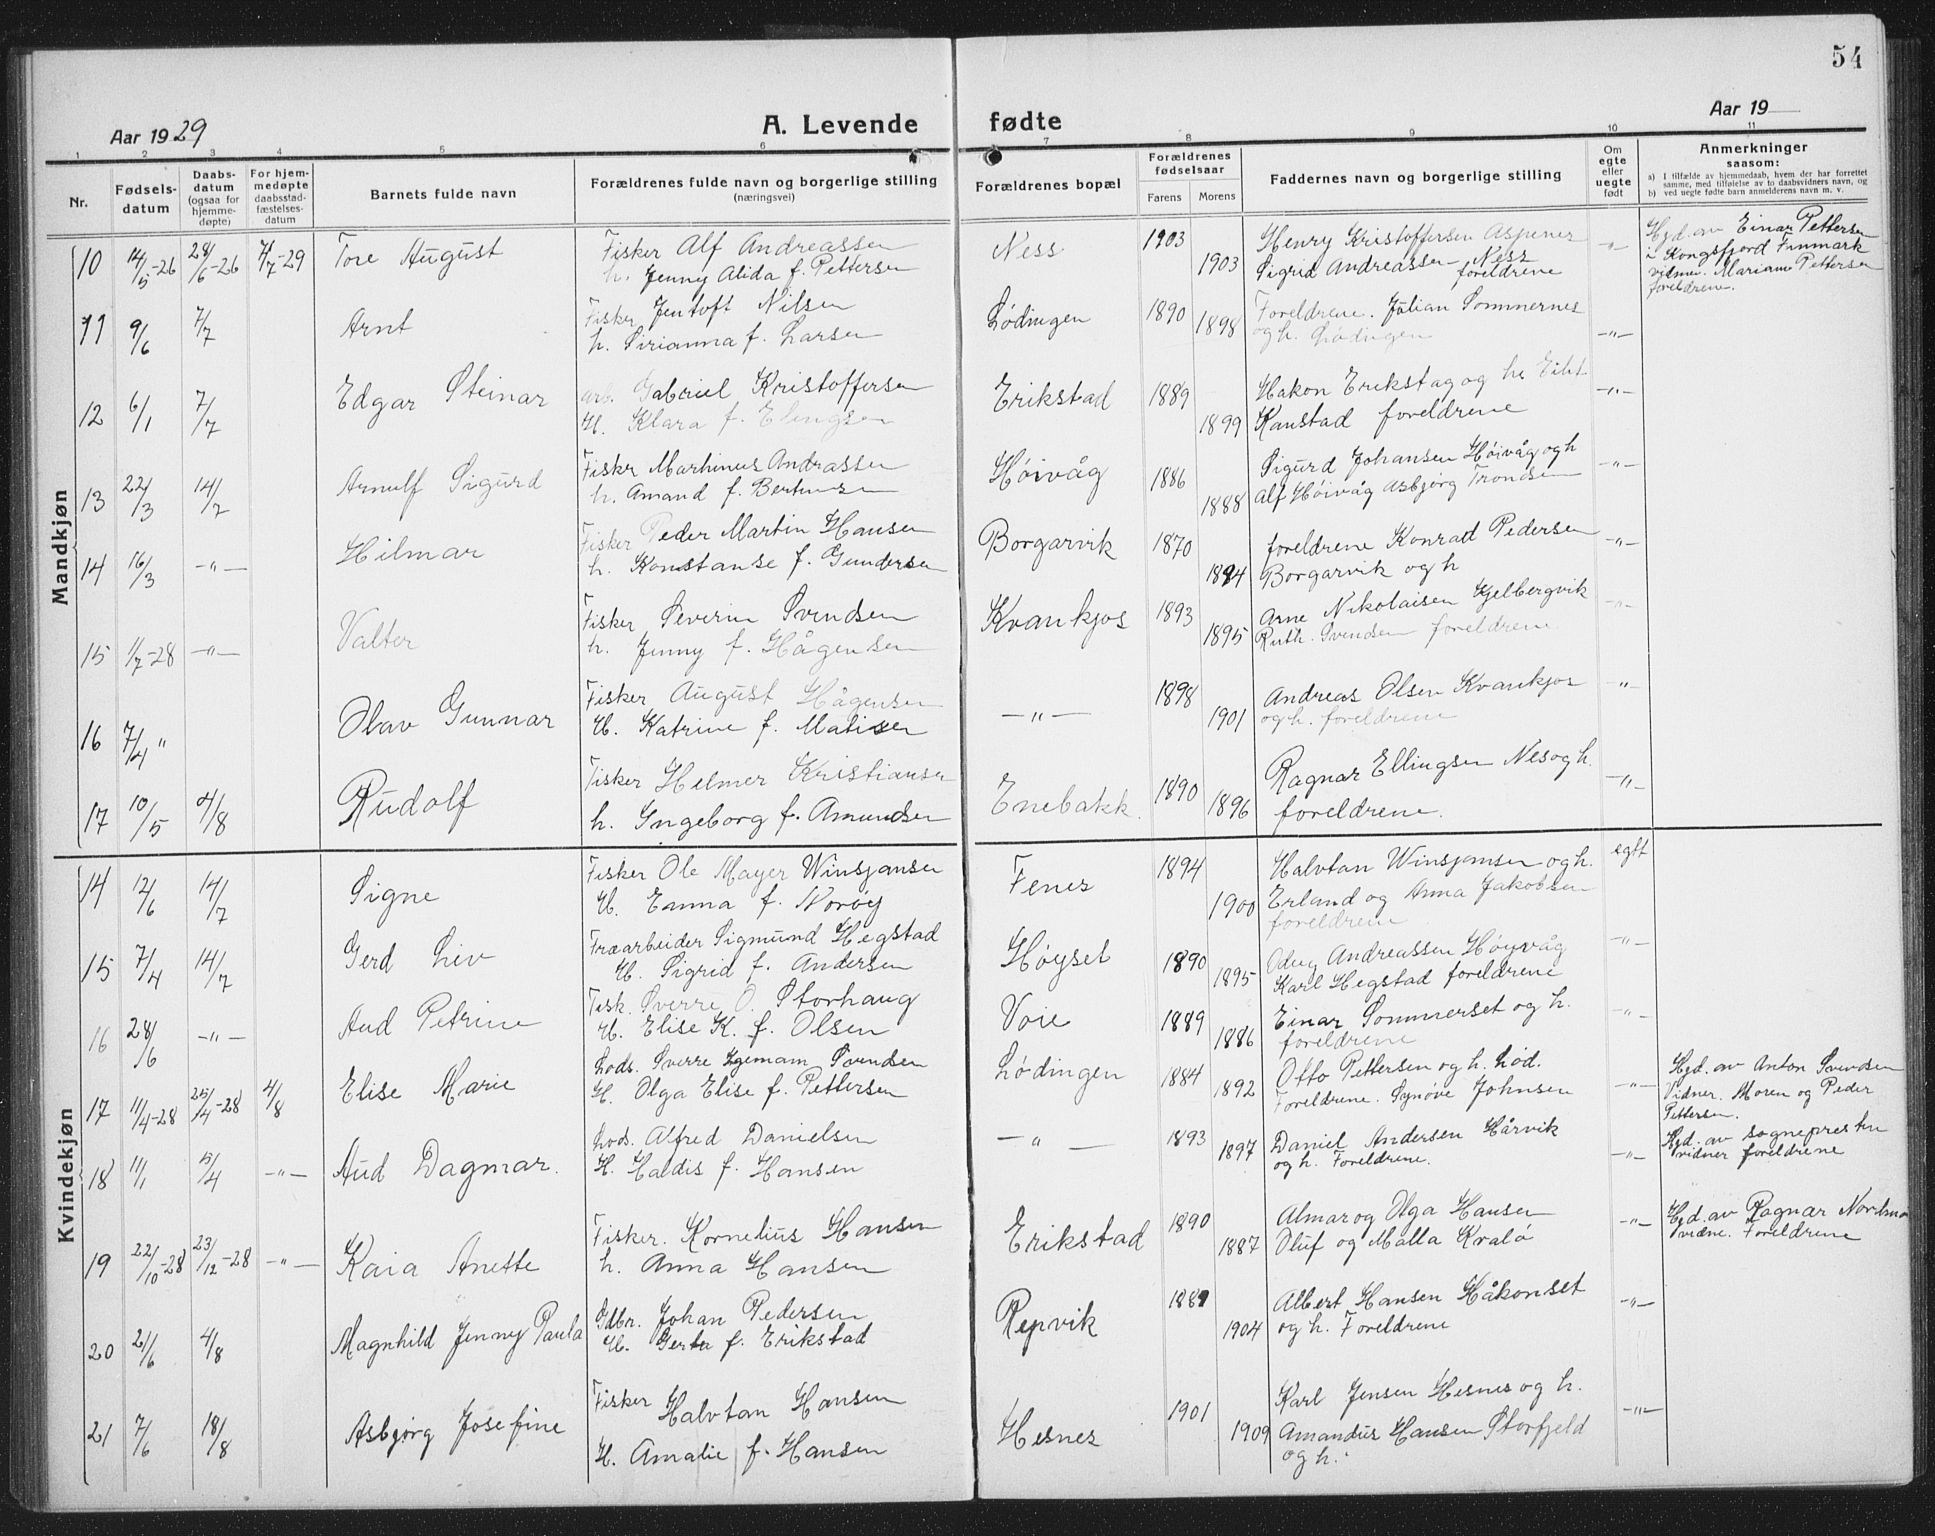 54
Aar 1929
A. Levende
fødte
Aar 19
1 2 3 4 5 6 7 8 9 10 11
Nr.
Fødsels-
datum
Daabs-
datum
(ogsaa for
hjemme-
døpte)
For hjem-
medøpte
daabsstad-
fæstelses-
datum
Barnets fulde navn
Forældrenes fulde navn og borgerlige stilling
(næringsvei)
Forældrenes bopæl
Forældrenes
fødselsaar
Farens Morens
Faddernes navn og borgerlige stilling
Om
egte
eller
uegte
født
Anmerkninger
saasom:
a) I tilfælde av hjemmedaab, hvem der har forrettet
samme, med tilføielse av to daabsvidners navn, og
b) ved uegte fødte barn anmelderens navn m. v.
Mandkjøn
10 14/5-26 28/6-26 4/7-29 Tore August Fisker Alf Andreassen
h. Jenny Alida f. Pettersen
Ness 1903 1903 Henry Kristoffersen Aspenes
Sigrid Andreassen Ness
foreldrene
-"-
Hjd. av Einar Pettersen
i Kongsfjord Finmark
vidner. Marianne Pettersen
foreldrene.
11 9/6 7/7 Arnt Fisker Jentoft Nilsen
h. Sirianna f. Larsen
Lødingen 1890 1898 Foreldrene. Julian Sommernes
og h. Lødingen
-"-
12 6/1 7/7 Edgar Steinar arb. Gabriel Kristoffersen
H. Klara f. Elingsen
Erikstad 1889 1899 Hakon Erikstag og h
Kanstad foreldrene
-"-
13 22/3 14/7 Arnulf Sigurd Fisker Marhinus Andrassen
h. Amand f. Bertinsen
Høivåg 1886 1888 Sigurd Johansen Høivåg og h
Alf Høivåg Asbjørg Trondsen
-"-
14 16/3 -"- Hilmar Fisker Peder Martin Hansen
h. Konstanse f. Gundersen
Borgarvik 1870 1894 foreldrene Konrad Pedersen
Borgarvik og h
-"-
15 1/7-28 -"- Valter Fisker Severin Svendsen
h. Jenny f. Hågensen
Kvankjos 1893 1895 Arne Nikolaisen Kjelbergvik
Ruth. Svendsen foreldrene
-"-
16 7/4 " Olav Gunnar Fisker August Hågensen
H. Katrine f. Matisen
-"- 1898 1901 Andreas Olsen Kvankjos
og h. foreldrene
-"-
17 10/5 4/8 Rudolf Fisker Helmer Kristiansen
h. Ingeborg f. Amundsen
Enebakk. 1890 1896 Ragnar Ellingsen Nes og h.
foreldrene.
-"-
Kvindekjøn
14 12/6 14/7 Signe Fisker Ole Mayer Winsjansen
H. Emma f. Norøy
Fenes 1894 1900 Halvtan Winsjansen og h.
Erland og Anna Jakobsen
foreldrene
egft
15 7/4 14/7 Gerd Liv Træarbeider Sigmund Hegstad
H. Sigrid f. Andersen
Høyset 1890 1895 Odny Andreassen Høyvåg
Karl Hegstad foreldrene
-"-
16 28/6 -"- Aud Petrine Fisk. Sverre O. Storhaug
H. Elise K. f. Olsen
Voie 1889 1886 Einar Sommerset og h.
foreldrene
-"-
17 11/4-28 25/4-28 4/8 Elise Marie Lods. Sverre Ingemann Svendsen
H. Olga Elise f. Pettersen
Lødingen 1884 1892 Otto Pettersen og h. Lød.
Foreldrene. Synøve Johnsen
-"-
Hjd. av Anton Svendsen
Vidner. Moren og Peder
Pettersen.
18 11/1 5/4 -"- Aud Dagmar. Lods. Alfred Danielsen
H. Haldis f. Hansen
-"- 1893 1897 Daniel Andersen Hårvik
og h. Foreldrene.
-"-
Hjd. av sognepresten
vidner foreldrene
19 22/10-28 23/12-28 -"- Kaia Anette Fisker. Kornelius Hansen
h. Anna Hansen
Erikstad 1890 1887 Almar og Olga Hansen
Oluf og Malla Kralø
-"-
Hjd. av Ragnar
vidne. Foreldrene
20 21/6 4/8 Magnhild Jenny Paula Gdbr. Johan Pedersen
H. Gerta f. Erikstad
Repvik 1889 1904 Albert Hansen Håkonset
og h. Foreldrene
-"-
21 7/6 18/8 Asbjørg Josefine Fisker Halvtan Hansen
H. Amalie f. Hansen
Hesnes 1901 1909 Karl Jensen Hesnes og h.
Amandus Hansen Storfjeld
og h.
-"-